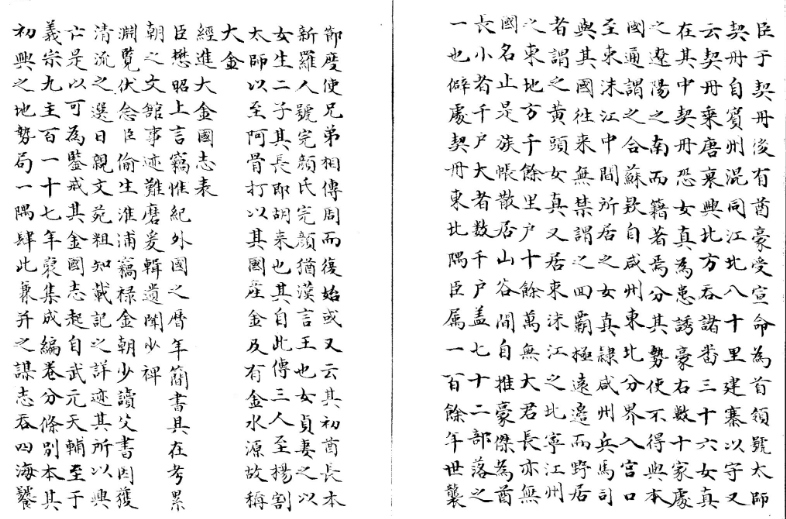 臣于契丹後有酋豪受宣命為首領號太師
契丹自賓州混同江北八十里建寨以守又
云契丹乘唐衰興北方吞諸畨三十六女真
在其中契丹恐女真為患誘豪右數十家處
之遼陽之南而籍著焉分其勢使不得與本
國通謂之合蘇欵自咸州東北分界入宫口
至束沫江中間所居之女真隸咸州兵馬司
與其國往来無禁謂之四霸極遠邊而野居
者謂之黄頭女真又居束沫江之北寧江州
之東地方千餘里户十餘萬無大君長亦無
國名止是族帳散居山谷間自推豪傑為酋
長小者千户大者數千户盖七十二部落之
一也僻處契丹東北隅臣属一百餘年世襲
節度使兄弟相傳周而復始或又云其初酋長本
新羅人號完顔氏完顔猶漢言王也女貞妻之以
女生二子其長即胡来也其自此傳三人至楊割
太師以至阿骨打以其國產金及有金水源故稱
大金
經進大金國志表
臣懋昭上言竊惟紀外國之暦年簡書具在考累
朝之文館事迹難磨爰輯遺聞少裨
淵覽伏念臣偷生淮浦竊禄金朝少讀父書因獲
清流之選日親文苑粗知載記之詳迹其所以興
亡是以可為鑒戒其金國志起自武元天輔至于
義宗九主百一十七年裒集成編卷分條别本其
初興之地勢局一隅肆此兼并之謀志吞四海饕